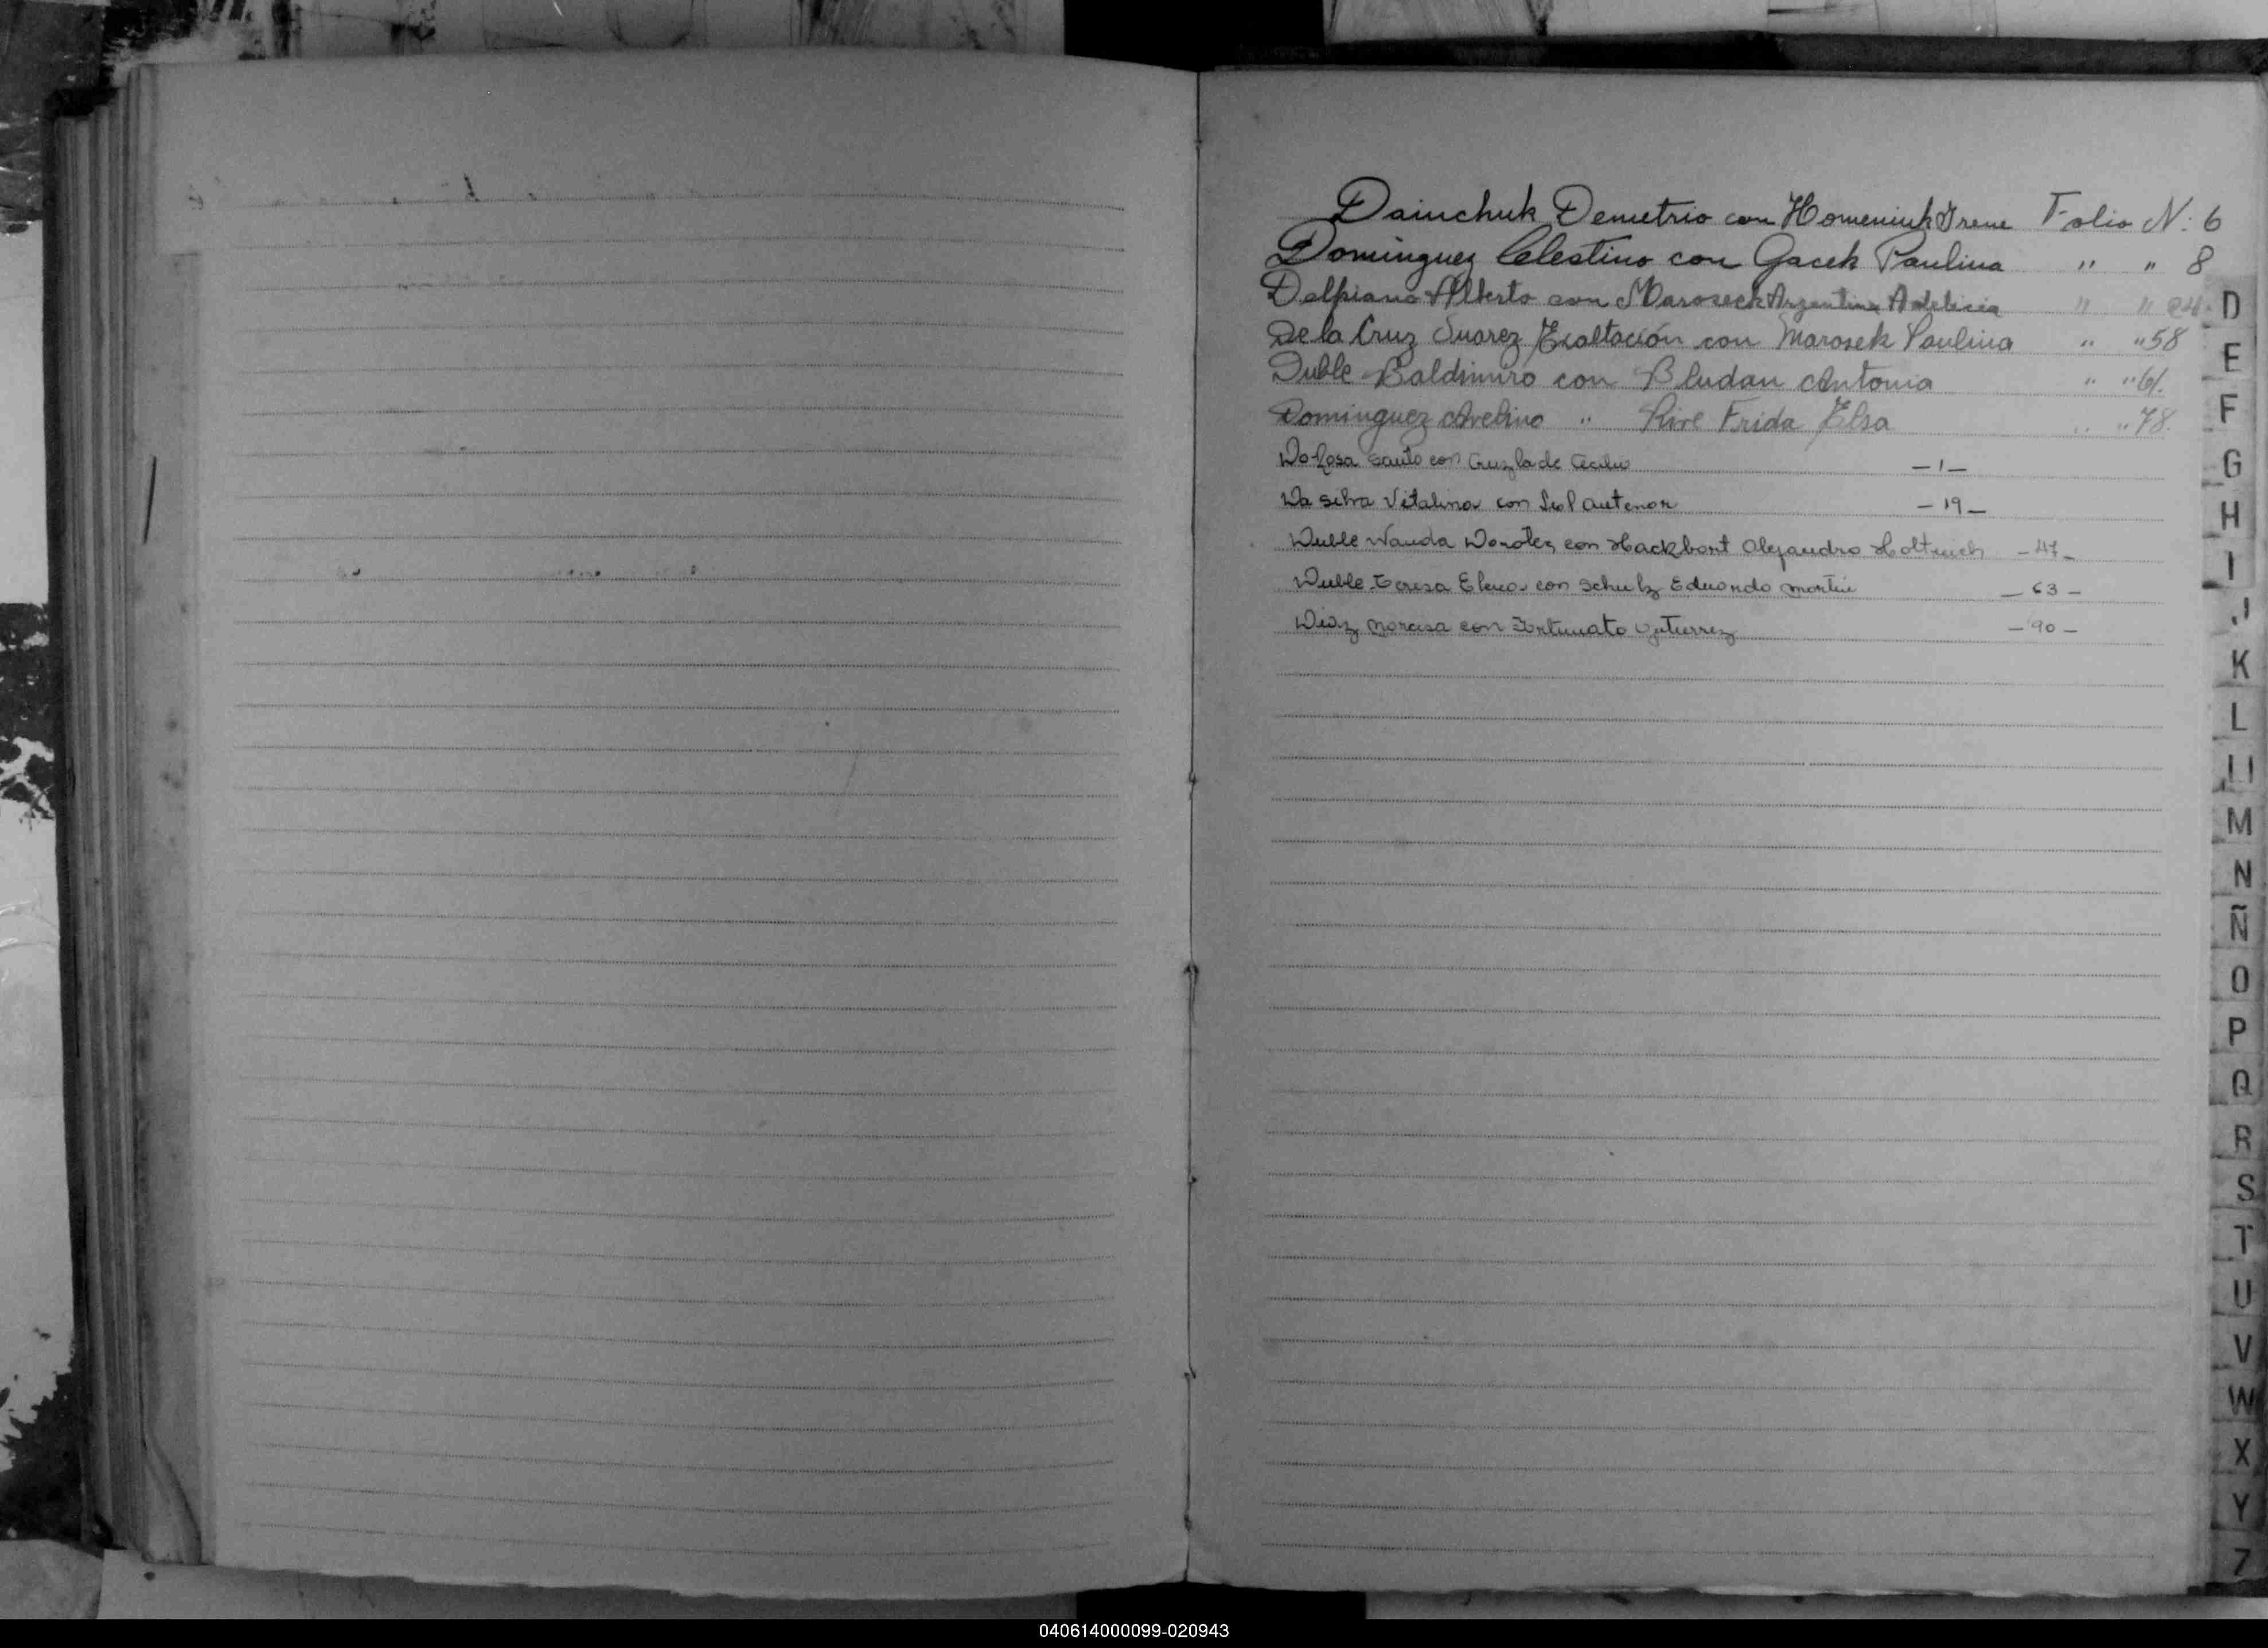 Dainchuk Demetrio con Homeniuk Irene Folio N: 6
Dominguez Celestino con Gacek Paulina " " 8
Delpiano Alberto con Maroseck Argentina Adelicia " " 24
De la Cruz Suarez Exaltación con Marosek Paulina " " 58
Duble Baldimiro con Bludau Antonia " " 61.
Dominguez Avelino " Frida Elsa " " 78.
Da Rosa Santo con Cruz la de Cecilio - 1 -
Da Silva Vitalina con Antenor - 19 -
Duble Wanda Dorotea con Hackbart Alejandro - 47 -
Duble Teresa Elena con Schulz Eduardo Martin - 63 -
Diaz Narcisa con Fortunato Gutierrez - 90 -
D
E
F
G
H
I
J
K
L
LL
M
N
Ñ
O
P
Q
R
S
T
U
V
W
X
Y
Z
040614000099-020943